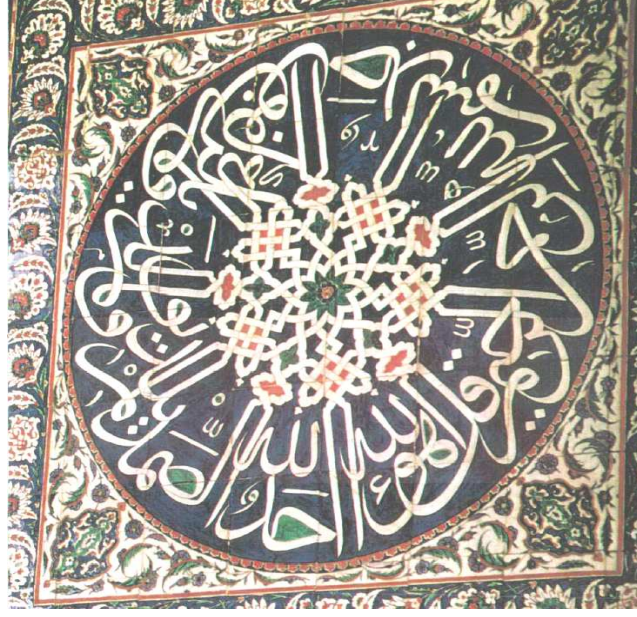 بسم الله الرحمن الرحيم قل هو الله احد الله الصمد لم يلد ولم يولد ولم يكن له كفوا احد